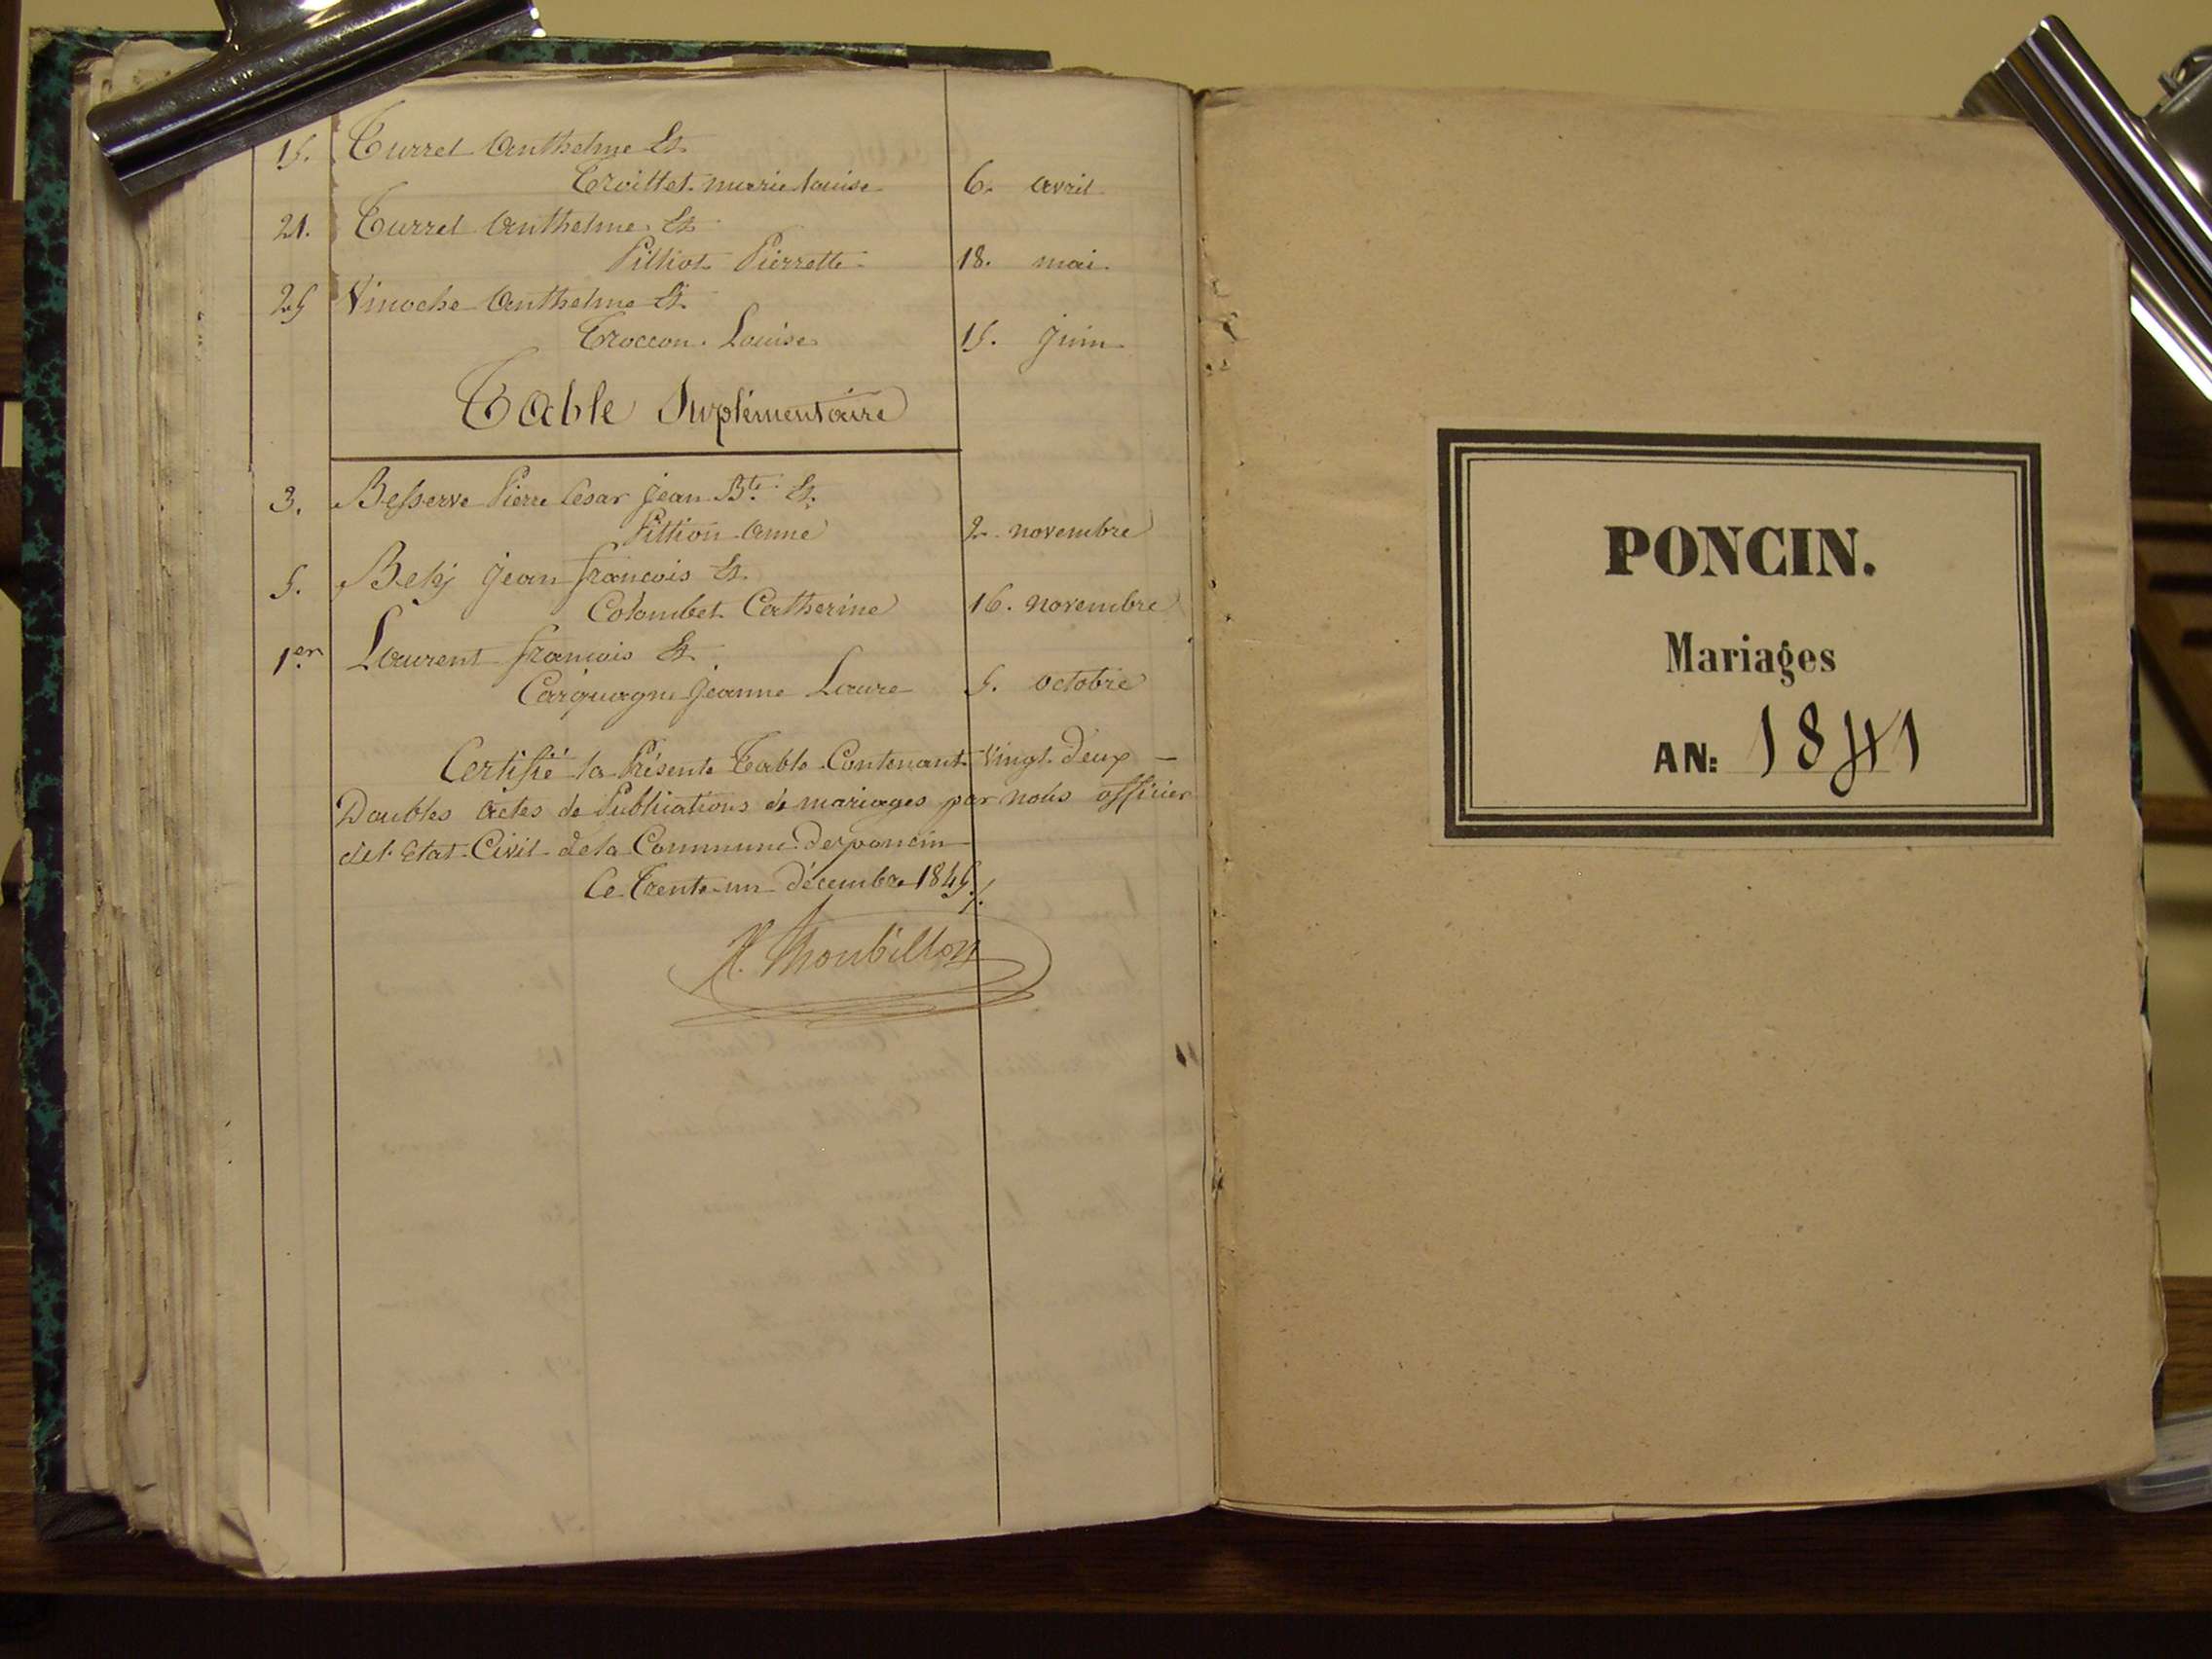 15. Turrel Anthelme Et
Troillet marie Louise 6. avril
21. Turrel Anthelme Et
Pittiot Pierrette 18. mai
25 Vinoche Anthelme Et
Troccon Louise 15. Juin
Table Suplémentaire
3. Besserve Pierre César Jean Bte Et
Pittion Anne 2. novembre
5. Jean françois Et
Colombet Catherine 16. novembre
1er Laurent francois Et
Jeanne Laure 5. octobre
Certifié la Présente Table Contenant Vingt Deux
Doubles Actes de Publications de mariages par nous officier
del'Etat Civil dela Commune de poncin
Ce Trente un décembre 1845
PONCIN.
Mariages
AN: 1841